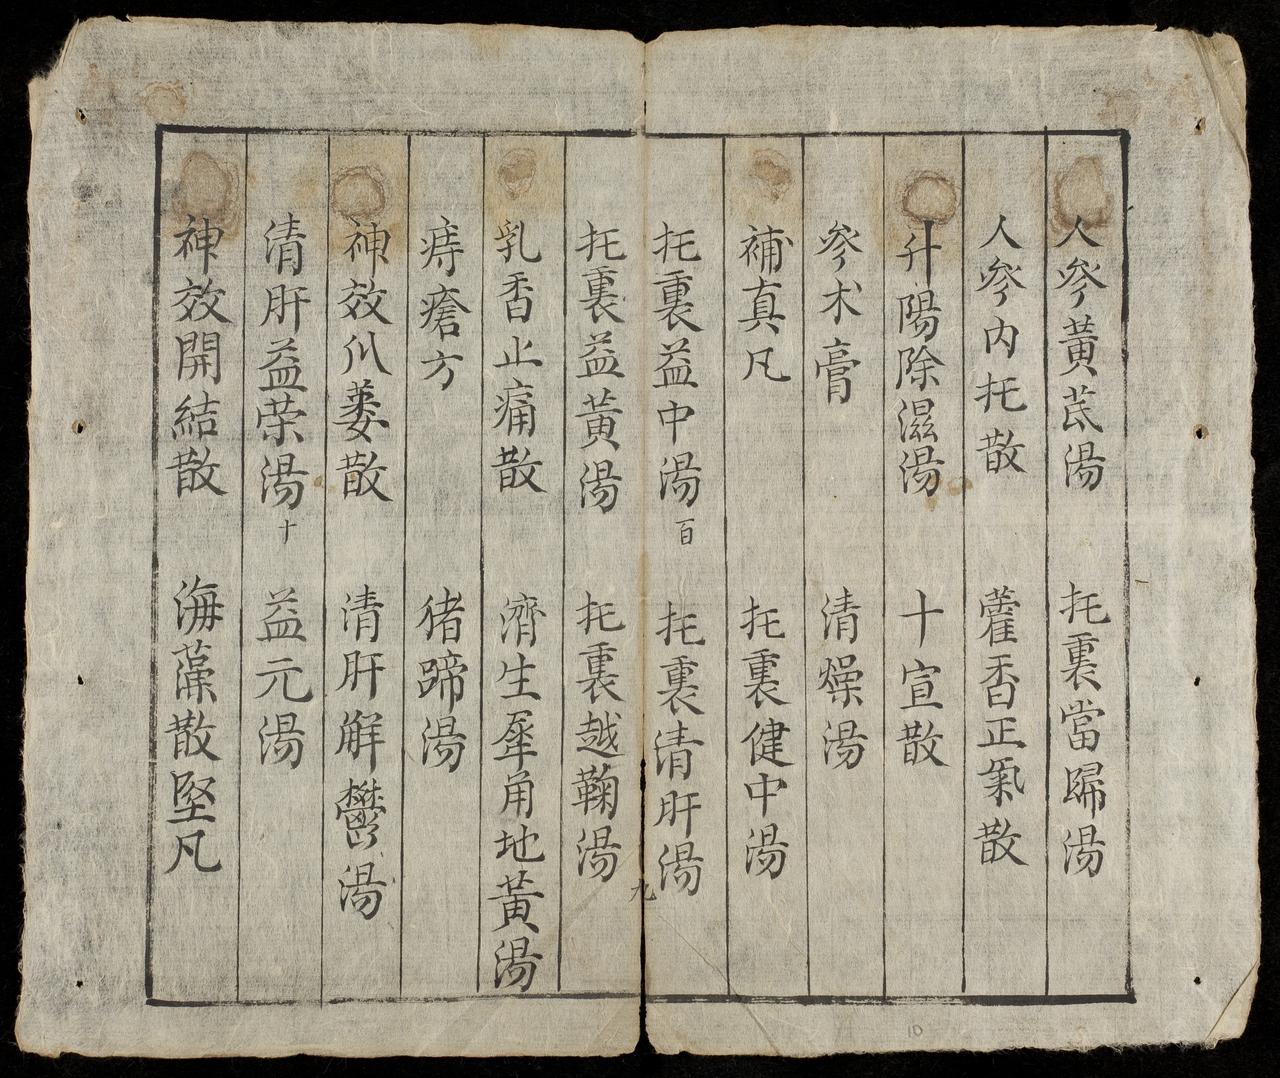 人参黃芪湯 托裏當歸湯
人参内托散 藿香正氣散
升陽除湿湯 十宣散
参术膏 清燥湯
補真凡 托裏健中湯
托裏益中湯百 托裏清肝湯
九
托裏益黃湯 托裏越鞠湯
乳香止痛散 濟生犀角地黃湯
痔瘡方 猪蹄湯
神效瓜蔞散 清肝解鬱湯
清肝益荣湯十 益元湯
神效開結散 海藻散堅凡
10